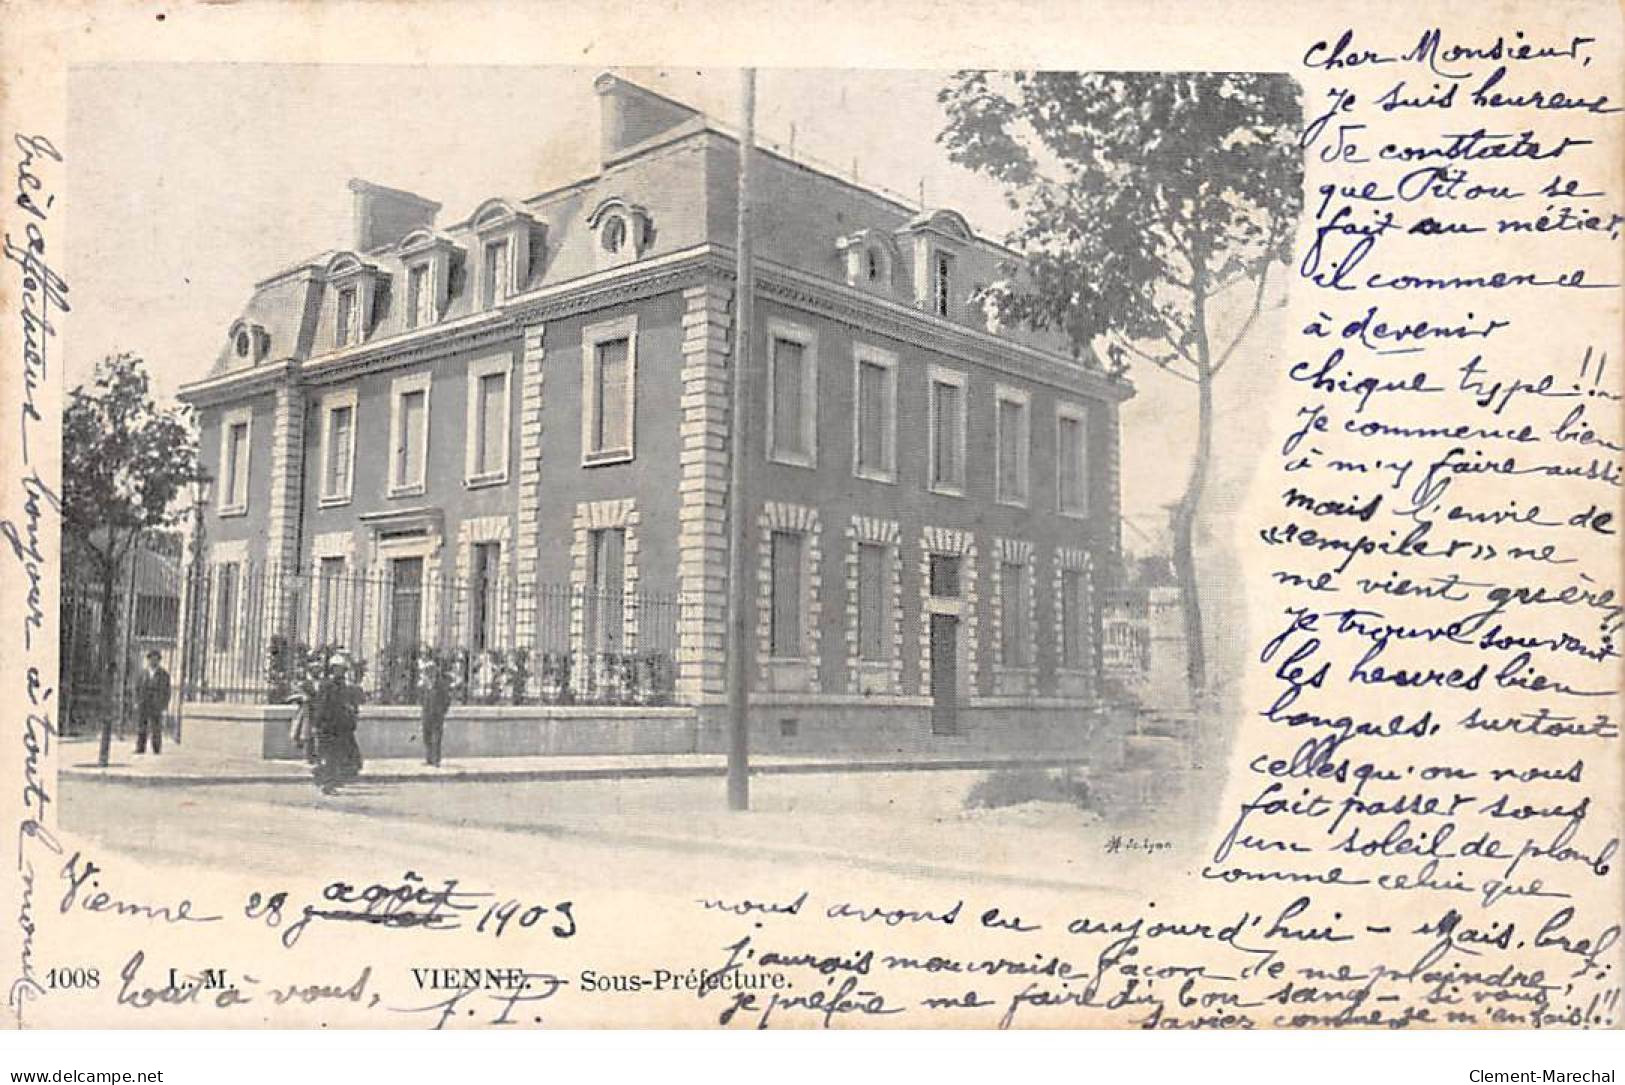 Cher Monsieur,
Je suis heureux
de constater
que Pitou se
fait au métier,
il commence
à devenir
chique type!!
Je commence bien
à m'y faire aussi
mais l'envie de
«rempiler» ne
me vient guère,
Je trouve souvent
les heures bien
longues, surtout
celles qu'on nous
fait passer sous
un soleil de plomb
comme celui que
nous avons eu aujourd'hui - Mais, bref
j'aurais mauvaise façon de me plaindre,
je préfère me faire du bon sang - si vous
saviez comme je m'en fais!!!
Vienne 28 août 1903
Tout à vous, J. P.
très affectueux bonjour à toute monde
M de Lyon
1008 L. M. VIENNE. — Sous-Préfecture.
delcampe.net
Clement-Marechal